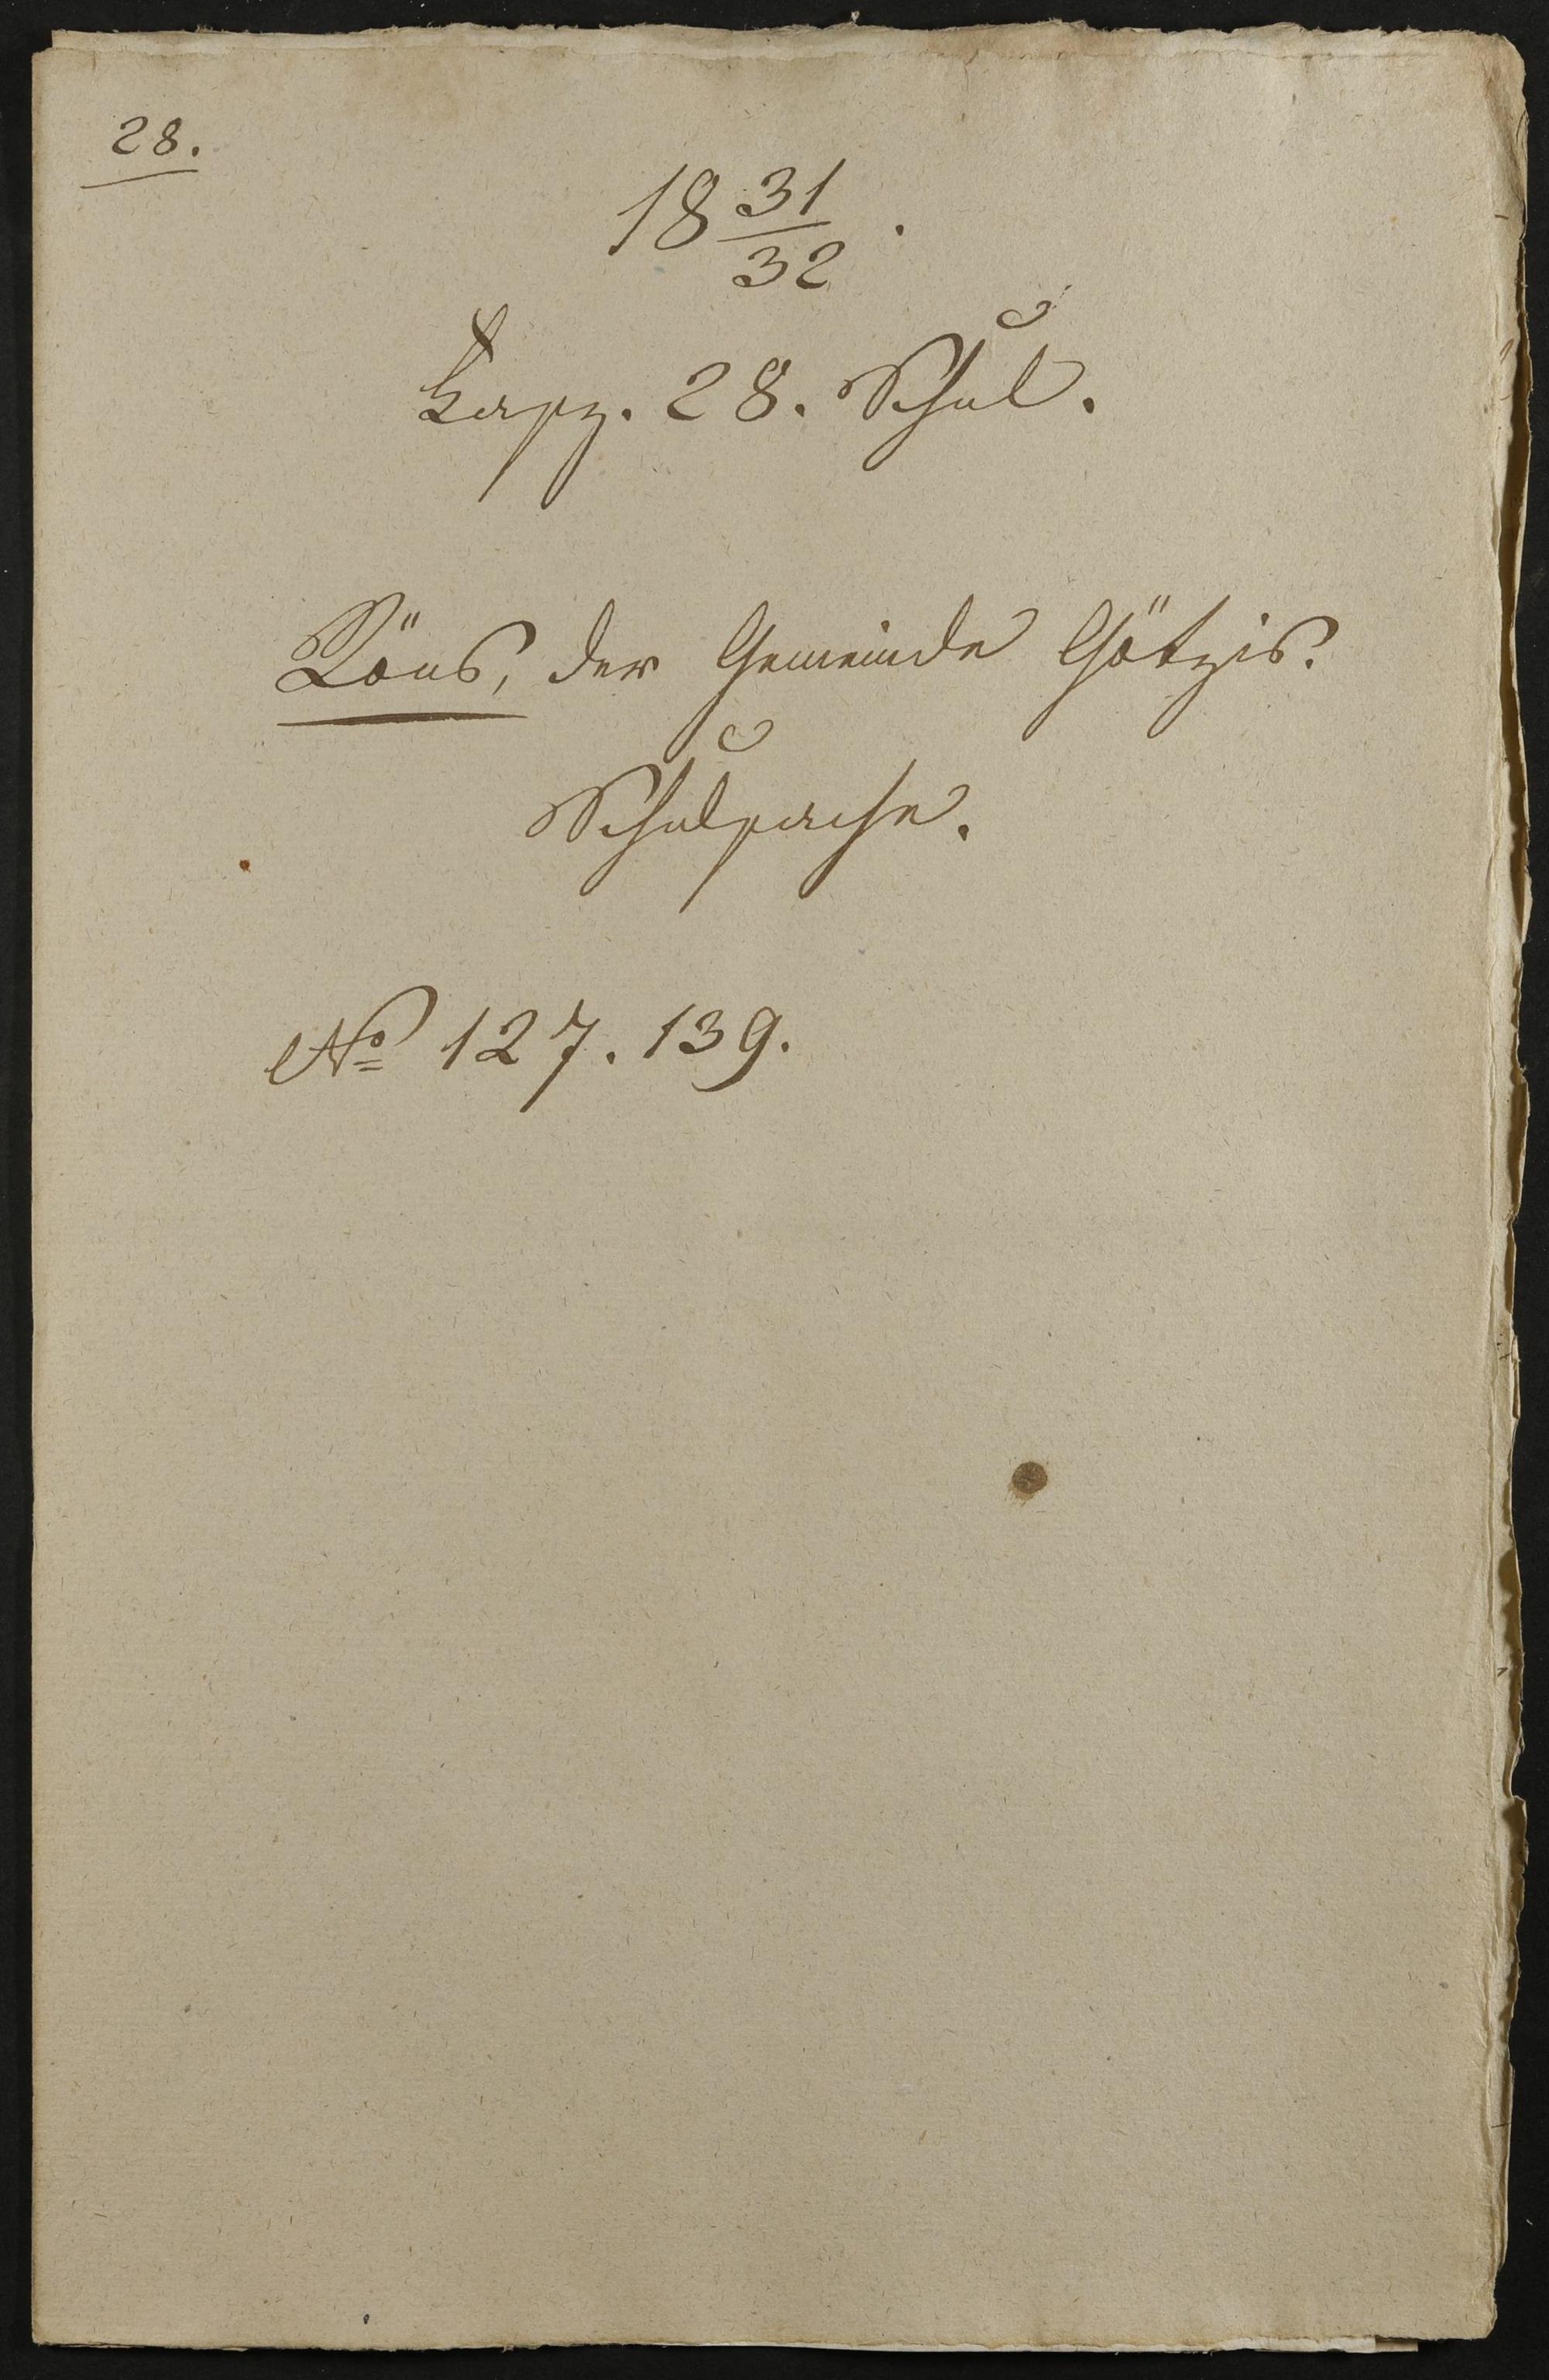 28.
18 31/32.
Fasz. 28. Schul.
Röns, der Gemeinde Götzis.
Schulsache.
No 127. 139.